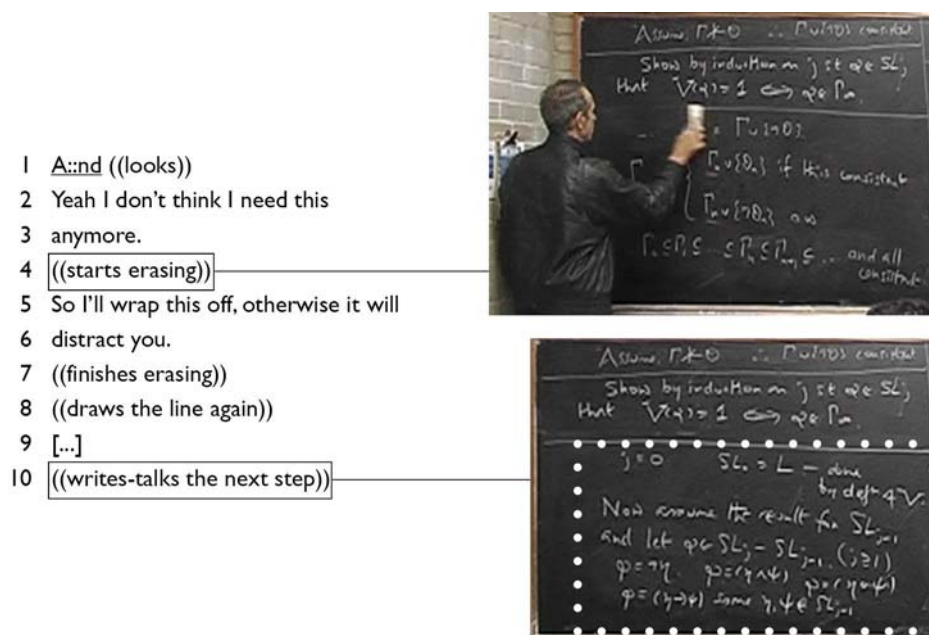 1 A::nd ((looks))
2 Yeah I don't think I need this
3 anymore.
4 ((starts erasing))
5 So I'll wrap this off, otherwise it will
6 distract you.
7 ((finishes erasing))
8 ((draws the line again))
9 [...]
10 ((writes-talks the next step))
Assume Γ⊭θ ∴ Γ∪{¬θ} consistent
Show by induction on j st φ∈ SLj
that V(φ)=1 ⇔ φ∈Γ∞
= Γ∪{¬θ}
Γn∪{θn} if this consistent
Γn∪{¬θn} o/w
Γ0⊆Γ1⊆ ... ⊆Γn⊆Γn+1⊆ ... and all
consistent
Assume Γ⊭θ ∴ Γ∪{¬θ} consistent
Show by induction on j st φ∈ SLj
that V(φ)=1 ⇔ φ∈Γ∞
j=0 SL0 = L – done
by defn of V.
Now assume the result for SLj-1
and let φ∈ SLj – SLj-1. (j≥1)
φ=¬η. φ=(η∧ψ) φ=(η∨ψ)
φ=(η→ψ) some η,ψ∈ SLj-1